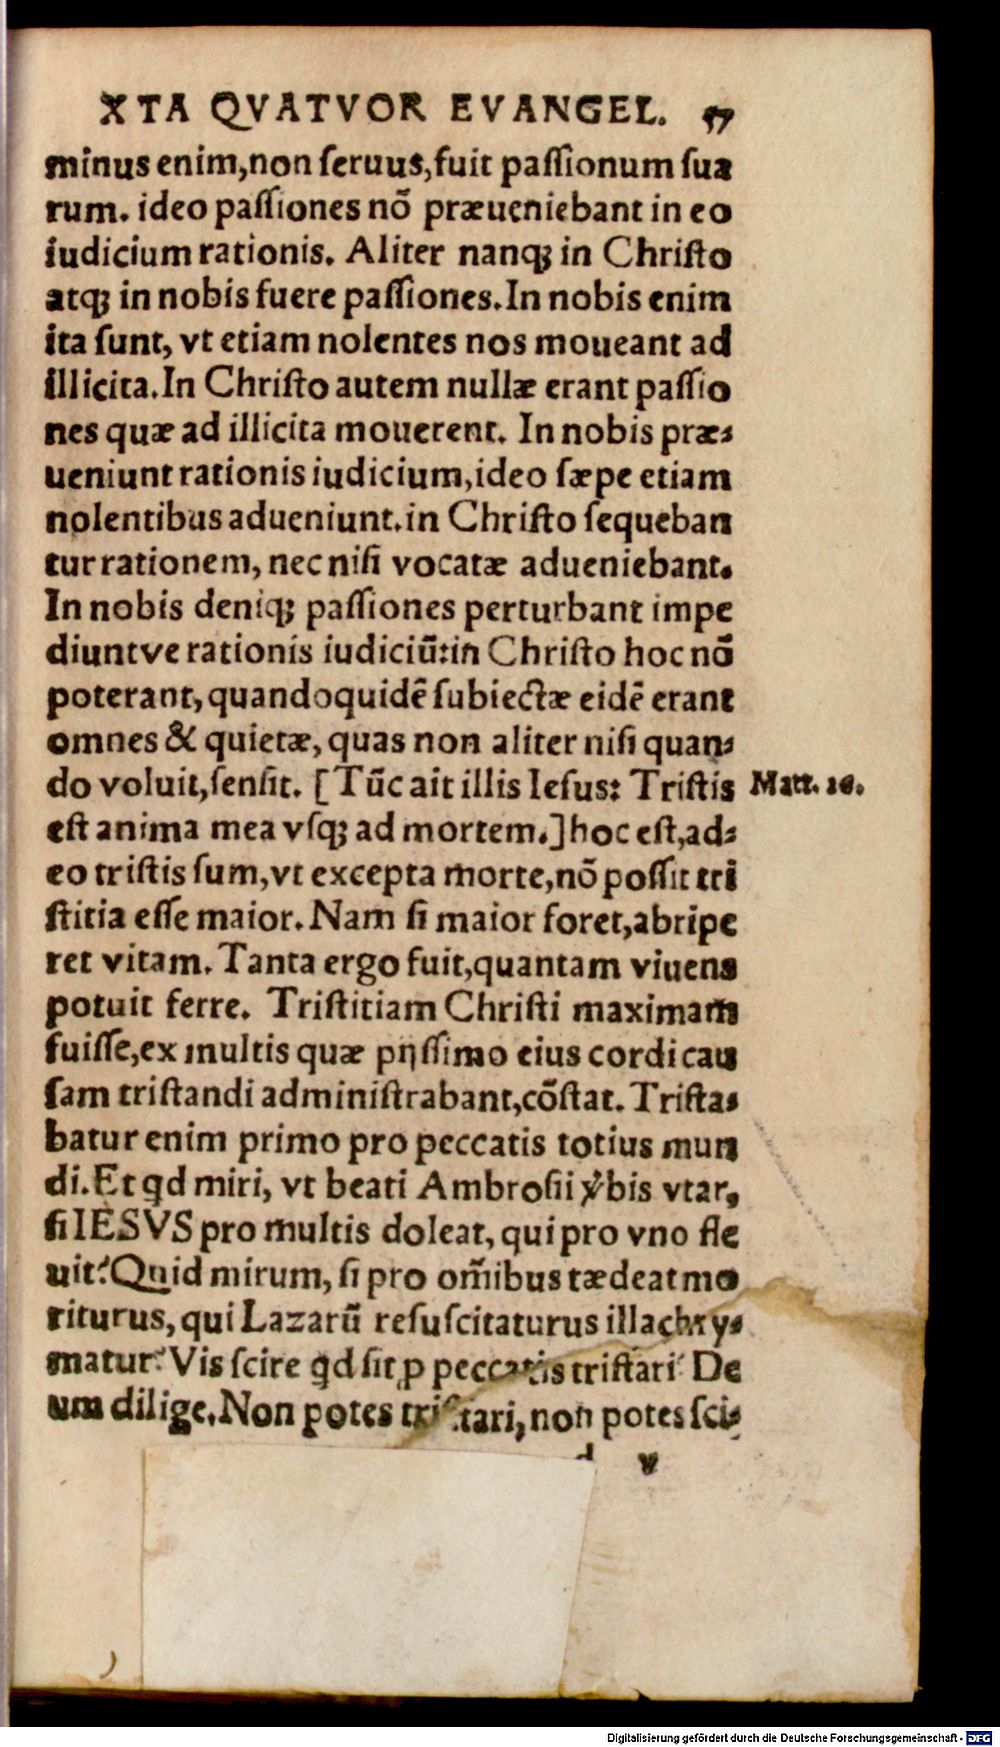 XTA QVATVOR EVANGEL. 57
minus enim,non ſeruus,fuit paſſionum ſua
rum. ideo paſſiones nõ præueniebant in eo
iudicium rationis. Aliter nanq; in Chriſto
atq; in nobis fuere paſſiones.In nobis enim
ita ſunt, vt etiam nolentes nos moueant ad
illicita.In Chriſto autem nullæ erant paſſio
nes quæ ad illicita mouerent. In nobis præ⸗
ueniunt rationis iudicium,ideo ſæpe etiam
nolentibus adueniunt.in Chriſto ſequeban
tur rationem, nec niſi vocatæ adueniebant.
In nobis deniq; paſſiones perturbant impe
diuntve rationis iudiciũ:in Chriſto hoc nõ
poterant,quandoquidẽ ſubiectæ eidẽ erant
omnes & quietæ, quas non aliter niſi quan⸗
do voluit,ſenſit. [Tũc ait illis Ieſus: Triſtis
Matt. 26.
eſt anima mea vſq; ad mortem.]hoc eſt,ad⸗
eo triſtis ſum,vt excepta morte,nõ poſſit tri
ſtitia eſſe maior. Nam ſi maior foret,abripe
ret vitam. Tanta ergo fuit,quantam viuens
potuit ferre. Triſtitiam Chriſti maximam
fuiſſe,ex multis quæ pijſſimo eius cordi cau
ſam triſtandi adminiſtrabant,cõſtat. Triſta⸗
batur enim primo pro peccatis totius mun
di.Et qd miri, vt beati Ambroſii v̓bis vtar,
ſi IESVS pro multis doleat, qui pro vno fle
uit?Quid mirum, ſi pro om̃ibus tædeat mo
riturus, qui Lazarũ reſuſcitaturus illachry⸗
matur?Vis ſcire qd ſit ꝓ peccatis triſtari? De
um dilige.Non potes triſtari, non potes ſci⸗
d v
Digitalisierung gefördert durch die Deutsche Forschungsgemeinschaft - DFG